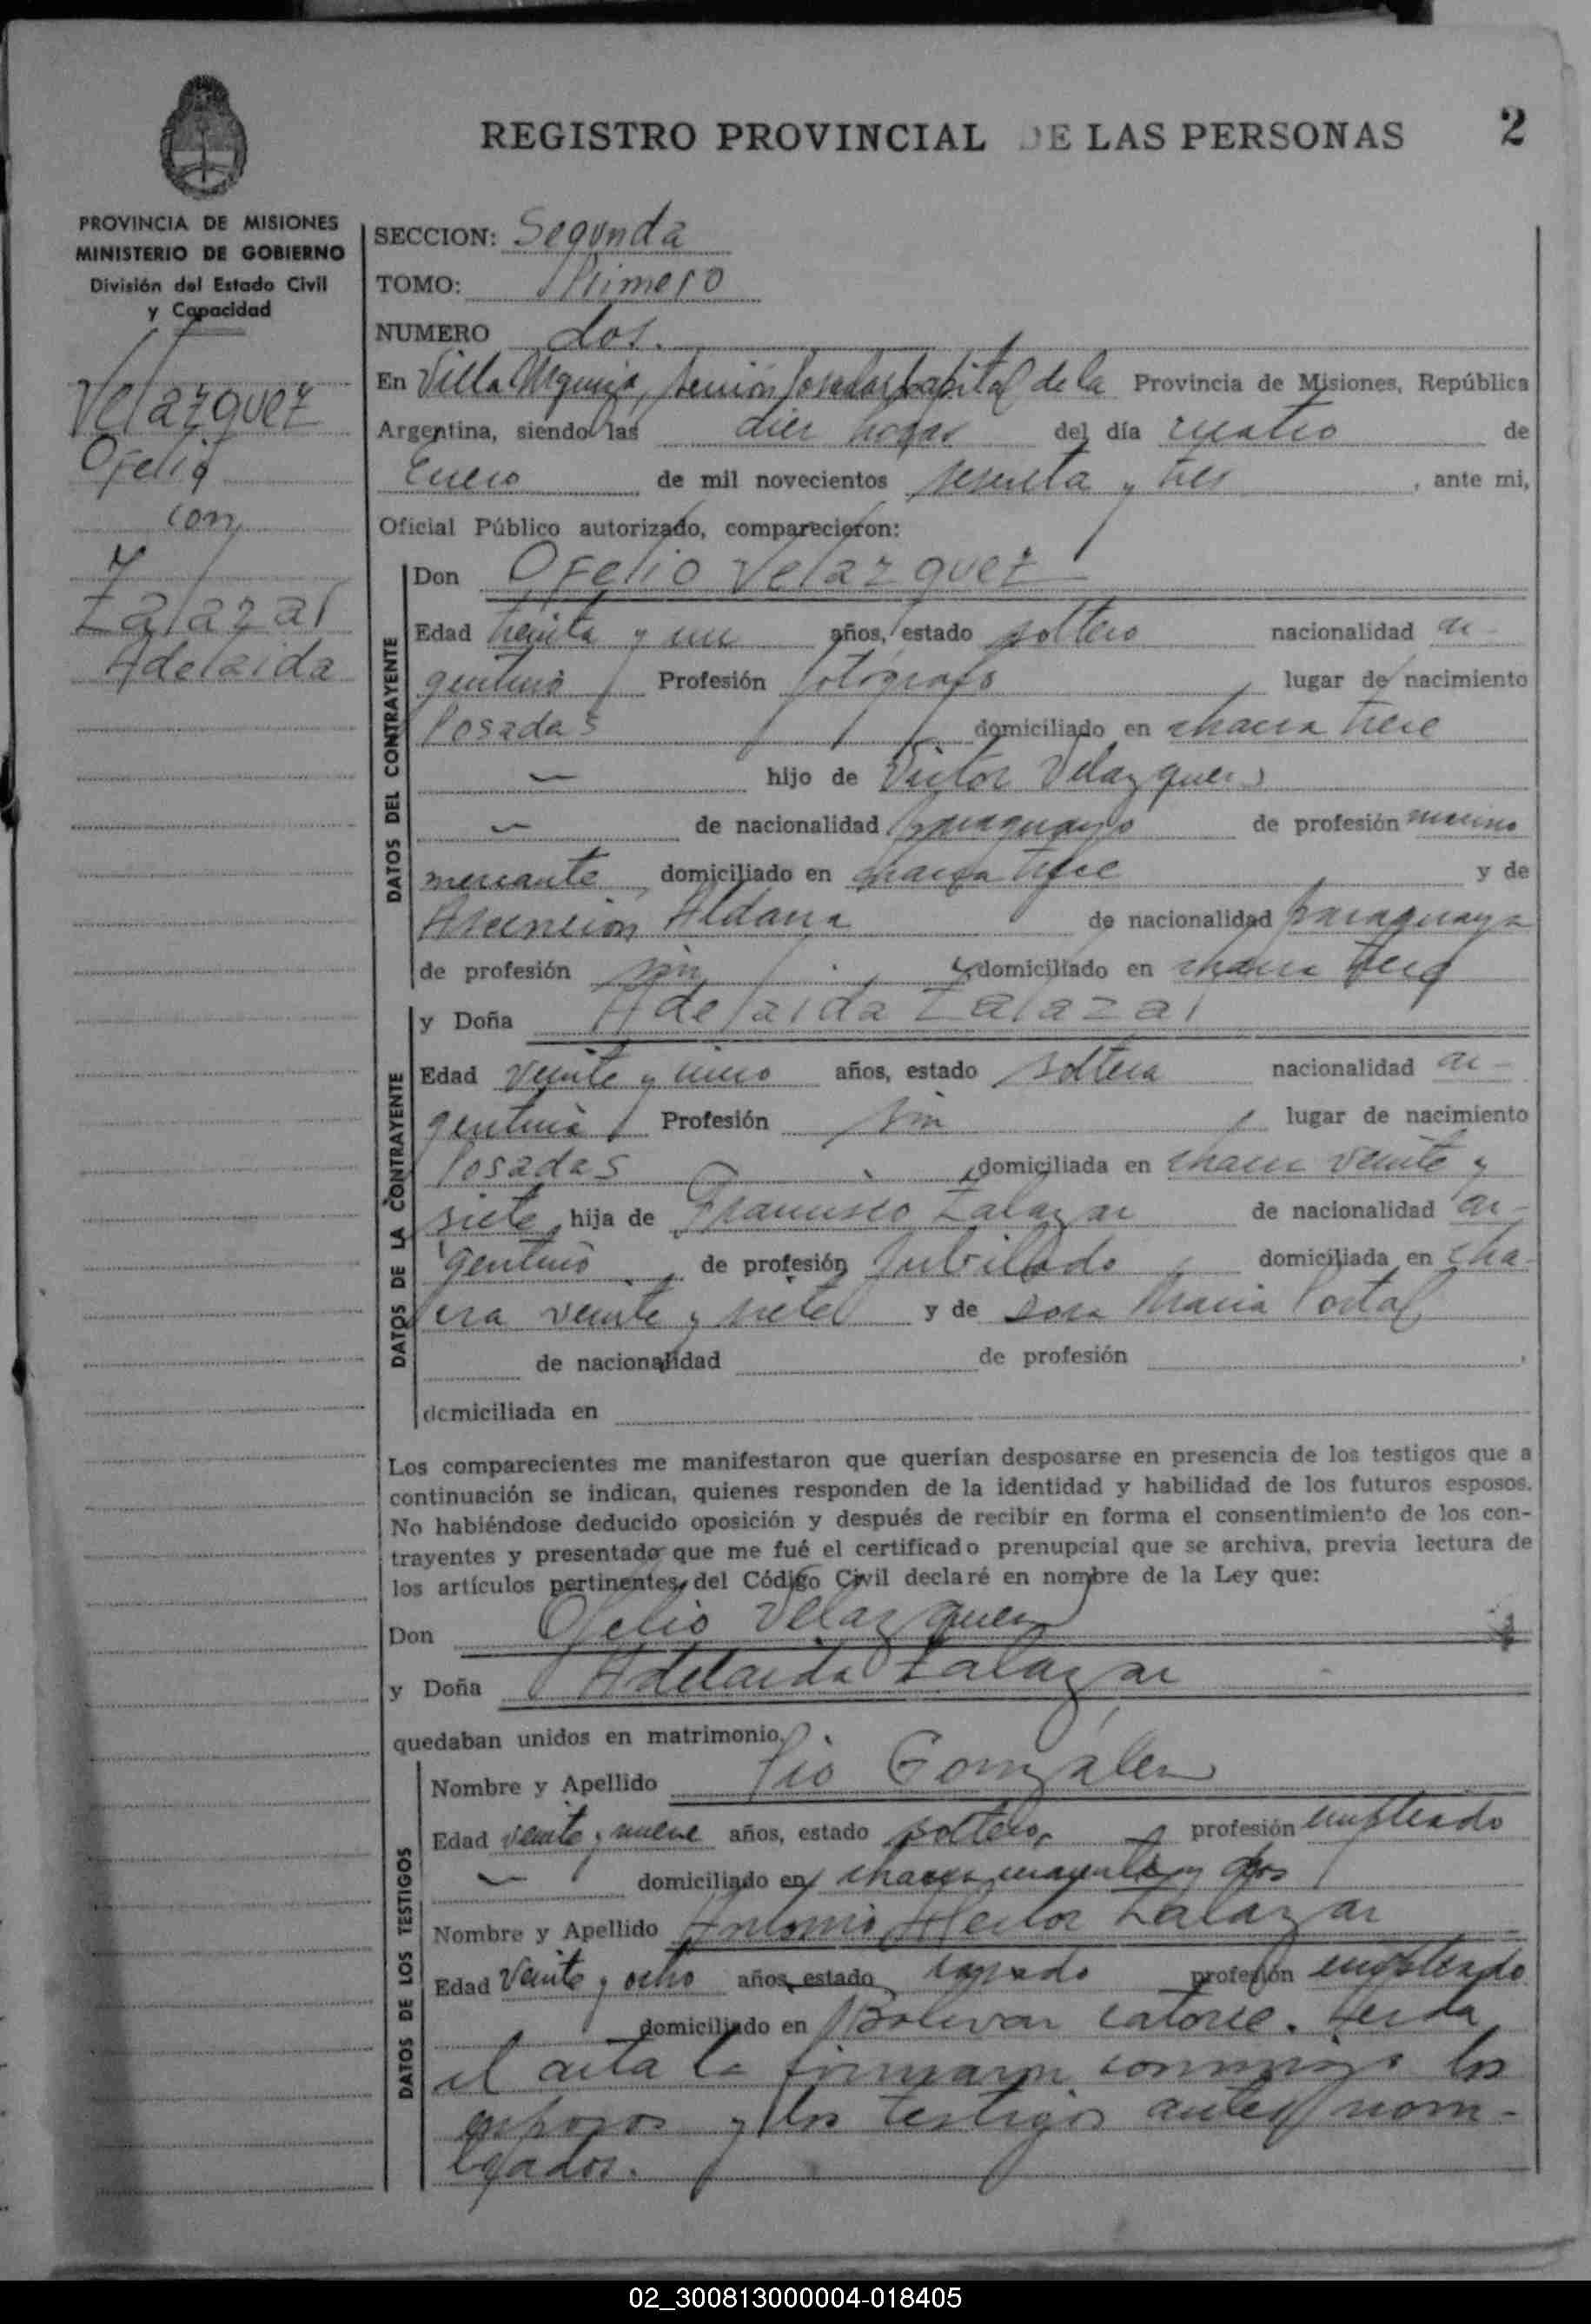 REGISTRO PROVINCIAL DE LAS PERSONAS 2
PROVINCIA DE MISIONES
MINISTERIO DE GOBIERNO
División del Estado Civil
y Capacidad
Velazquez
Ofelio
con
Zalazar
Adelaida
SECCION: Segunda
TOMO: Primero
NUMERO dos.
En Villa Urquiza, Posadas, Capital de la Provincia de Misiones, República
Argentina, siendo las diez horas del día cuatro de
Enero de mil novecientos sesenta y tres, ante mi,
Oficial Público autorizado, comparecieron:
DATOS DEL CONTRAYENTE
Don Ofelio Velazquez
Edad treinta y un años, estado soltero nacionalidad ar-
gentino Profesión fotógrafo lugar de nacimiento
Posadas domiciliado en chacra trece
hijo de Victor Velazquez
de nacionalidad paraguayo de profesión marino
mercante, domiciliado en chacra trece y de
Asención Aldana de nacionalidad paraguaya
de profesión sin domiciliado en chacra trece
DATOS DE LA CONTRAYENTE
y Doña Adelaida Zalazar
Edad veinte y cinco años, estado soltera nacionalidad ar-
gentina Profesión sin lugar de nacimiento
Posadas domiciliada en chacra veinte y
siete, hija de Francisco Zalazar de nacionalidad ar-
gentino de profesión Jubilado domiciliada en cha-
cra veinte y siete y de Maria Portal
de nacionalidad de profesión ,
domiciliada en
Los comparecientes me manifestaron que querían desposarse en presencia de los testigos que a
continuación se indican, quienes responden de la identidad y habilidad de los futuros esposos.
No habiéndose deducido oposición y después de recibir en forma el consentimiento de los con-
trayentes y presentado que me fué el certificado prenupcial que se archiva, previa lectura de
los artículos pertinentes del Código Civil declaré en nombre de la Ley que:
Don Ofelio Velazquez
y Doña Adelaida Zalazar
quedaban unidos en matrimonio.
DATOS DE LOS TESTIGOS
Nombre y Apellido Pio González
Edad veinte y nueve años, estado soltero, profesión empleado
domiciliado en chacra cuarenta y dos
Nombre y Apellido Antonio Hector Zalazar
Edad veinte y ocho años, estado casado profesión empleado
domiciliado en Bolivar catorce. Leida
el acta la firmaron conmigo los
esposos y los testigos antes nom-
brados.
02_300813000004-018405